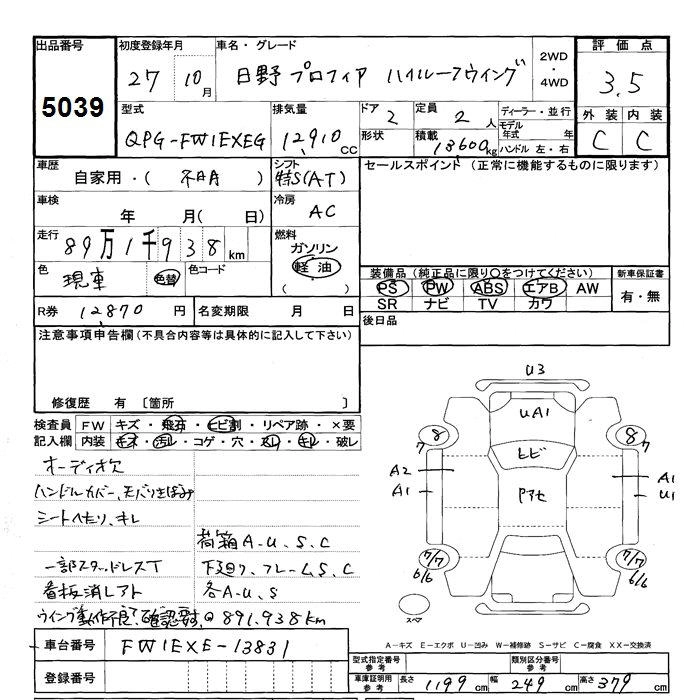 出品番号
5039
初度登録年月
27 10月
車名・グレード
日野 プロフィア ハイルーフウイング
2WD
・
4WD
評価点
3.5
外装 内装
C C
型式
QPG-FW1EXEG
排気量
12,910 CC
ドア 2
形状
定員 2 人
積載 13600kg
ディーラー・並行
モデル年式 年
ハンドル 左・右
車歴
自家用・( 不明 )
シフト
特S(AT)
セールスポイント (正常に機能するものに限ります)
車検
年 月( 日)
冷房
AC
走行
89万1千938km
燃料
ガソリン
軽油
( )
色
現車 色替
色コード
装備品(純正品に限り〇をつけてください)
PS PW ABS エアB AW
SR ナビ TV カワ
新車保証書
有・無
R券 12,870 円
名変期限 月 日
後日品
注意事項申告欄(不具合内容等は具体的に記入して下さい)
修復歴 有 〔箇所 〕
検査員記入欄
FW キズ・飛石・ヒビ割・リペア跡・×要
内装 キズ・汚レ・コゲ・穴・スレ・キレ・破レ
オーディオ欠
ハンドルカバー、
シートヘたり、キレ
荷箱A.U.S.C
一部スタッドレスT
下廻り、フレームS、C
看板消しアト
各A.U.S
ウイング 要確認 @891,938km
車台番号 FW1EXE-13831
登録番号
U3
UA1
ヒビ
Pアセ
8 7
8 7
A2
A1
A1
U1
7/7
6/6
7/7
6/6
スペア
A−キズ E−エクボ U−凹み W−補修跡 S−サビ C−腐食 XX−交換済
型式指定番号
参考
類別区分番号
参考
車庫証明用
参考
長さ 1199 cm 幅 249 cm 高さ 379 cm